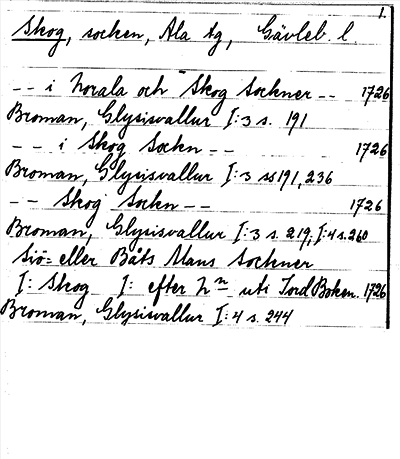 1.
Skog, socken, Ala tg, Gävleb. l.
-- i Norala och Skog Sockner -- 1726
Broman, Glysisvallur I:3 s. 191
-- i Skog Sockn -- 1726
Broman, Glysisvallur I:3 ss 191, 236
-- Skog Sockn -- 1726
Broman, Glysisvallur I:3 s. 219; I:4 s. 260
Siö= eller Båts Mans Sockner
I: Skog I: efter h⁠n uti Jord Boken. 1726
Broman, Glysisvallur I:4 s. 244